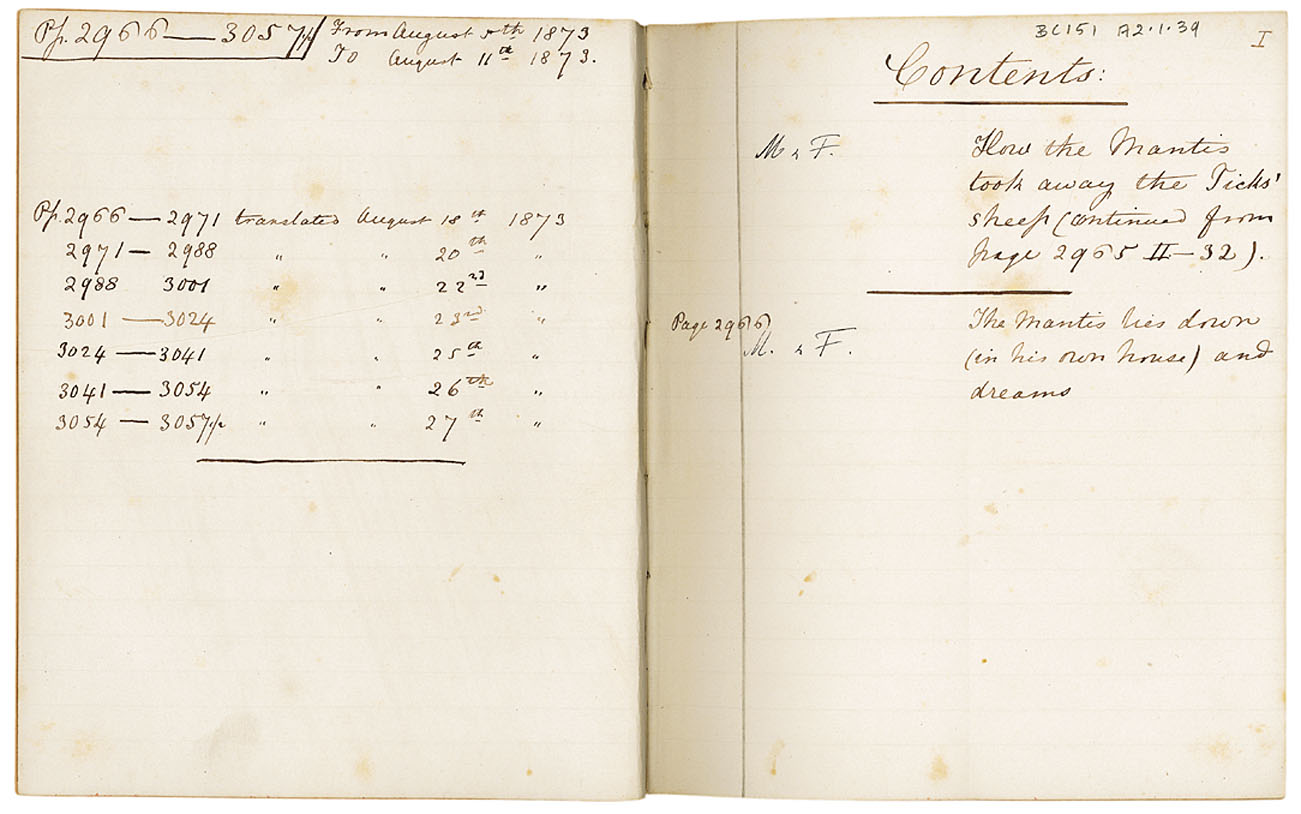 Pp. 2966 — 3057½ From August 5th 1873
To August 11th 1873.
Pp. 2966 — 2971 translated August 18th 1873
2971 — 2988 " " 20th "
2988 3001 " " 22nd "
3001 — 3024 " " 23rd "
3024 — 3041 " " 25th "
3041 — 3054 " " 26th "
3054 — 3057½ " " 27th "
BC151 A2.1.39 I
Contents:
M & F. How the Mantis
took away the Ticks'
sheep (continued from
page 2965 II — 32).
Page 2966 The Mantis lies down
M. & F. (in his own house) and
dreams